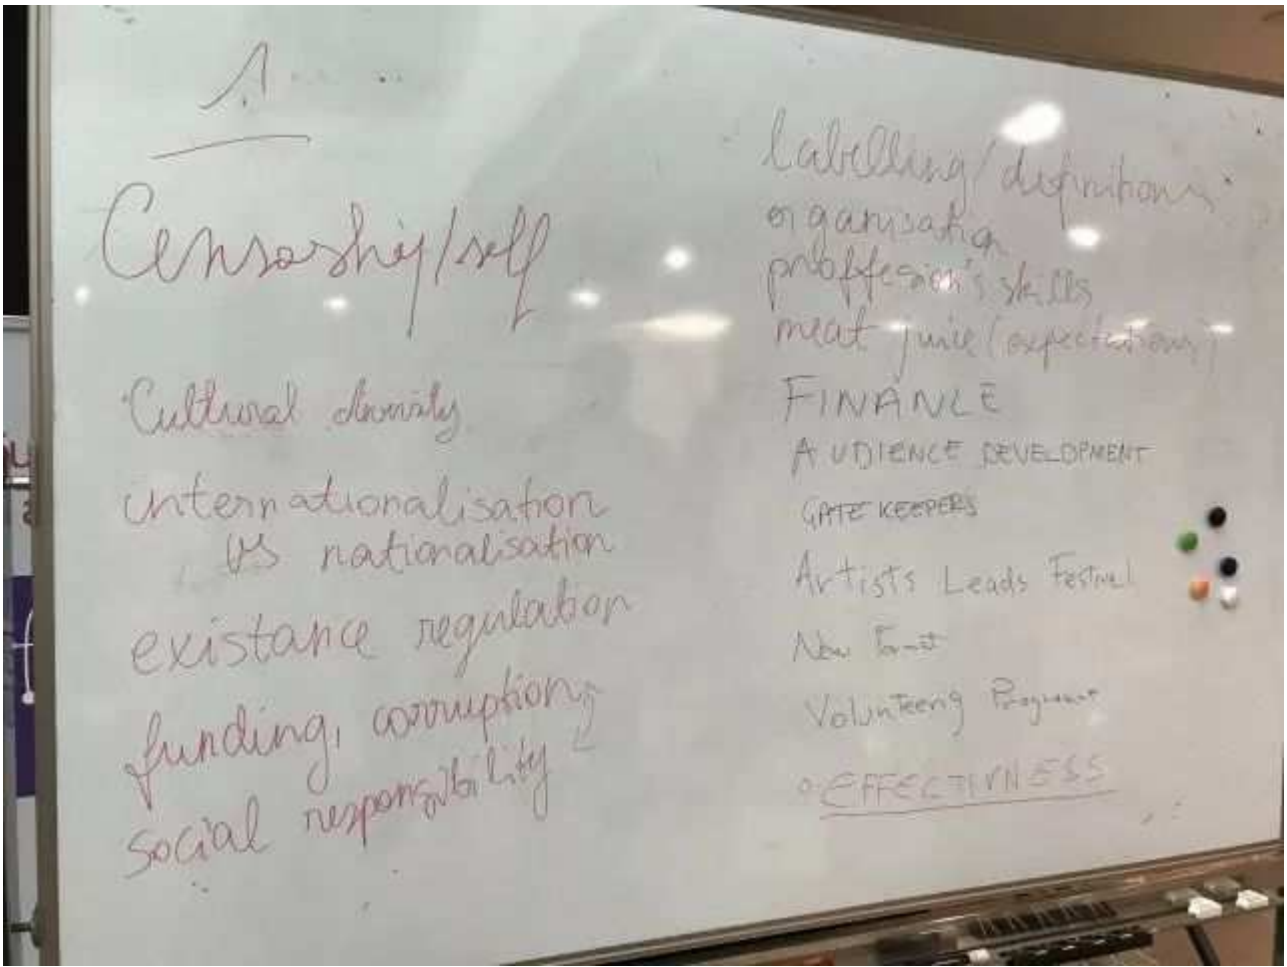 1.
Censoship/self
Cultural diversity
internationalisation
VS nationalisation
existance regulation
funding, corruption
social responsibility
labelling/definitions
organisation
proffesion's skills
meat juice (expectations)
FINANCE
AUDIENCE DEVELOPMENT
GATE KEEPERS
Artists Leads Festival
New Format
Volunteeng Programe
EFFECTIVNESS